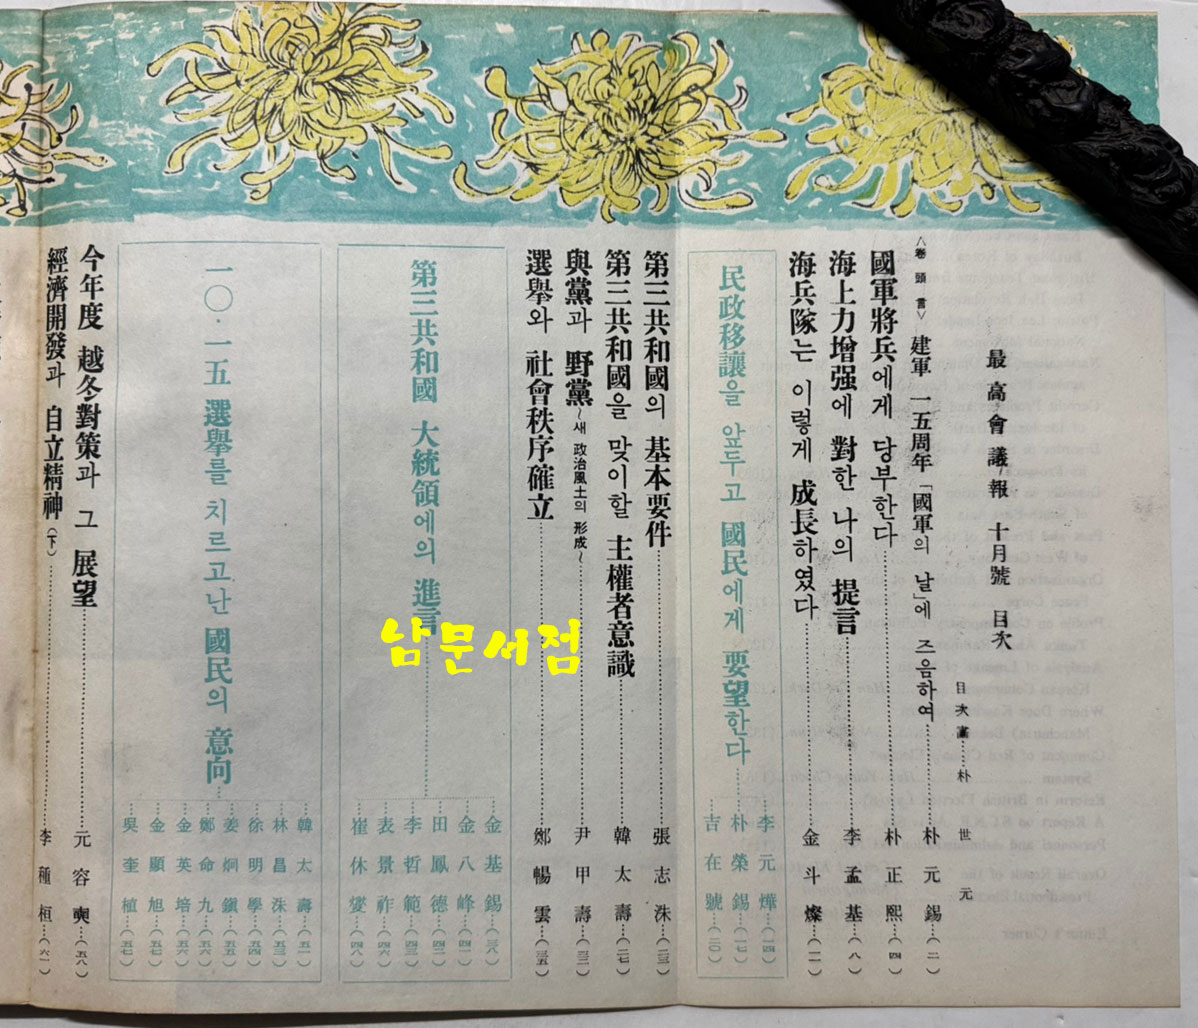 最高會議報 十月號 目次
目次畵…朴世元
〈卷頭言〉 建軍 一五周年 「國軍의 날」에 즈음하여……朴元錫…(二)
國軍將兵에게 당부한다……朴正熙…(四)
海上力增强에 對한 나의 提言……李孟基…(八)
海兵隊는 이렇게 成長하였다……金斗燦…(一一)
民政移讓을 앞두고 國民에게 要望한다…
李元燁…(一四)
朴榮錫…(一七)
吉在號…(二〇)
第三共和國의 基本要件……張志洙…(二三)
第三共和國을 맞이할 主權者意識……韓太壽…(二七)
與黨과 野黨～새 政治風土의 形成～……尹甲壽…(三二)
選擧와 社會秩序確立……鄭暢雲…(三五)
第三共和國 大統領에의 進言……
金基錫…(三八)
金八峰…(四一)
田鳳德…(四二)
李哲範…(四三)
表景祚…(四六)
崔休燮…(四八)
一〇·一五 選擧를 치르고난 國民의 意向…
韓太壽…(五一)
林昌洙…(五三)
徐明學…(五四)
姜炯鎭…(五五)
鄭命九…(五六)
金英培…(五六)
金顯旭…(五七)
吳奎植…(五七)
今年度 越冬對策과 그 展望……元容奭…(五八)
經濟開發과 自立精神(下)……李種桓…(六一)
남문서점